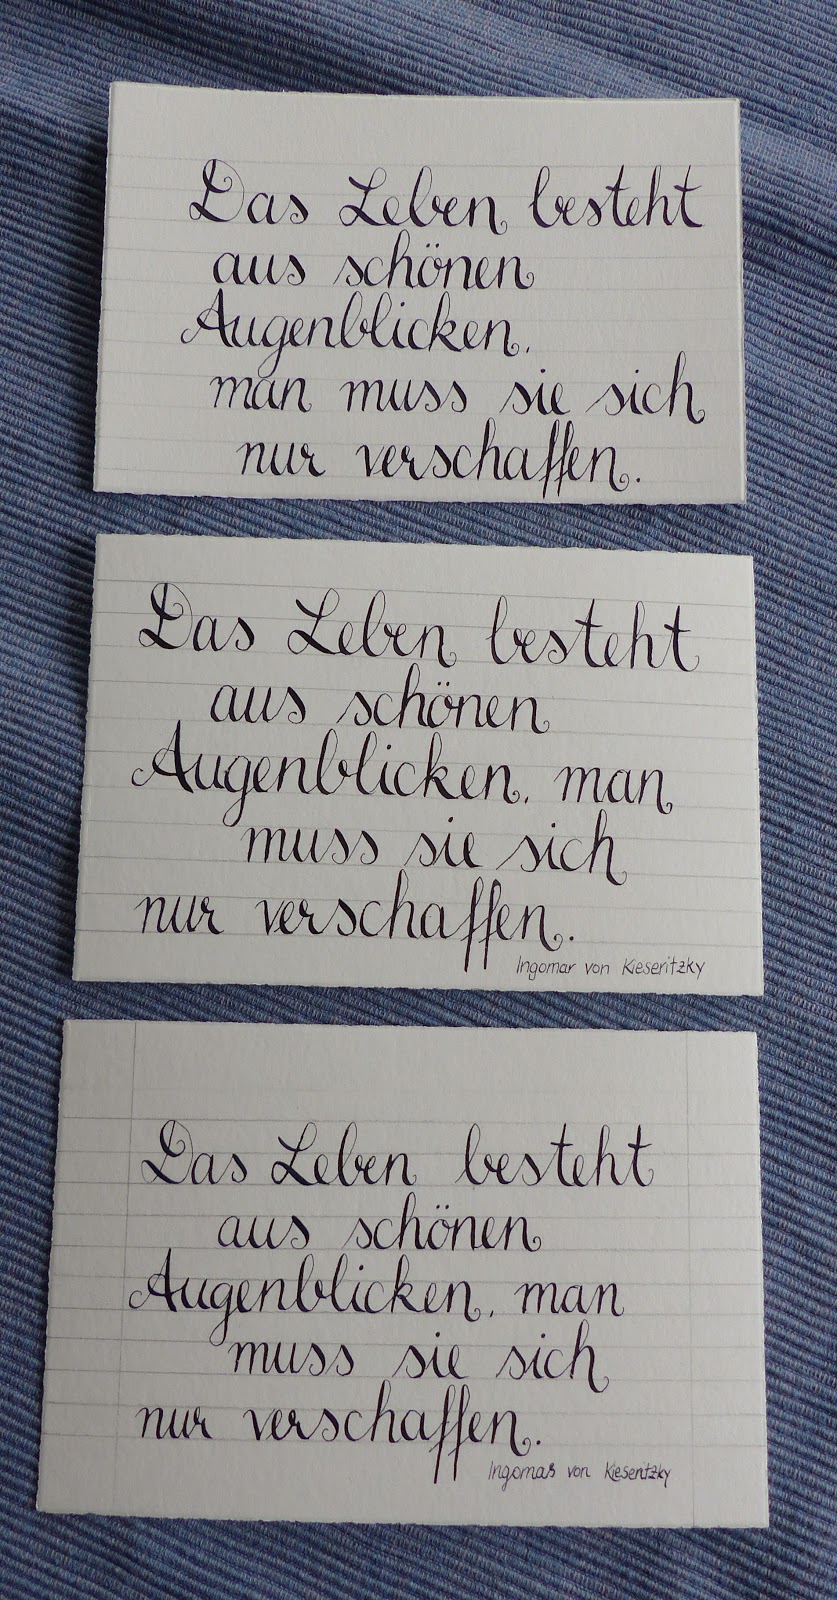 Das Leben besteht
aus schönen
Augenblicken,
man muss sie sich
nur verschaffen.
Das Leben besteht
aus schönen
Augenblicken, man
muss sie sich
nur verschaffen.
Ingomar von Kieseritzky
Das Leben besteht
aus schönen
Augenblicken, man
muss sie sich
nur verschaffen.
Ingomar von Kieseritzky